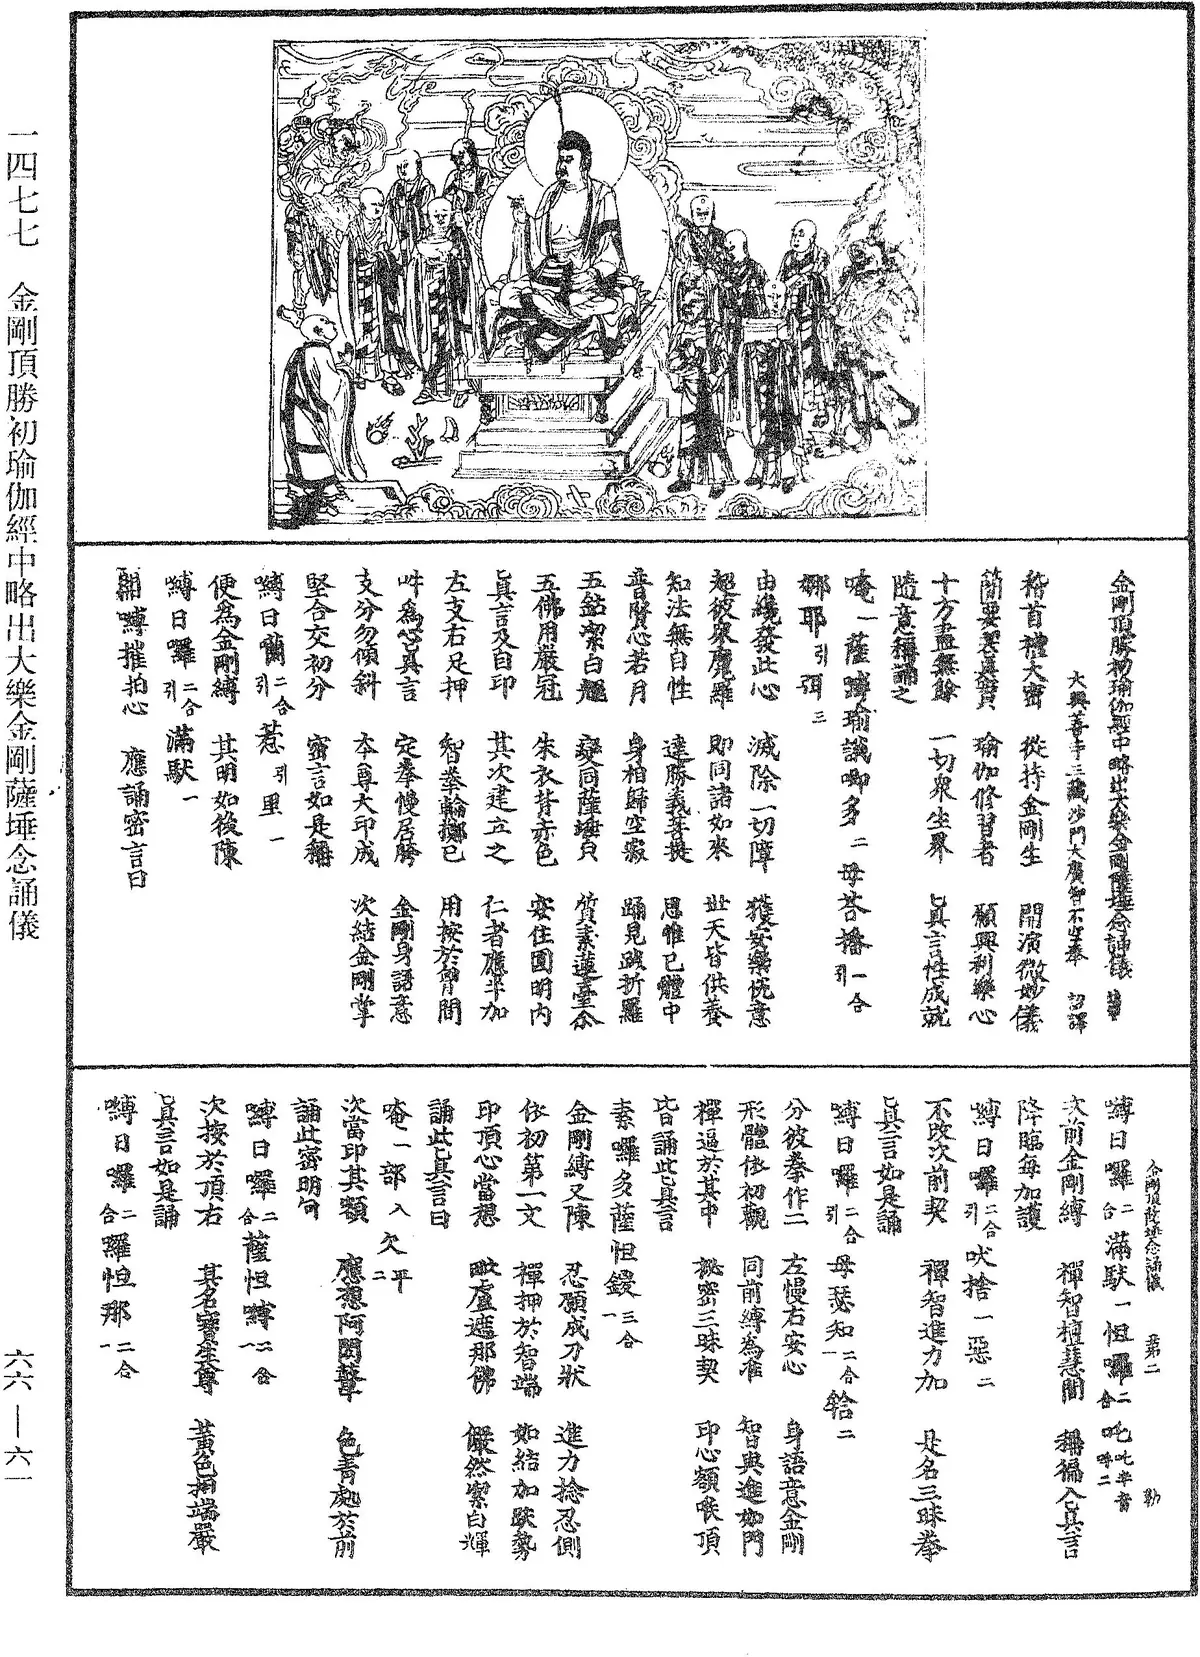 一四七七　金剛頂勝初瑜伽經中略出大樂金剛薩埵念誦儀
六六—六一
金剛頂勝初瑜伽經中略出大樂金剛薩埵念誦儀
大興善寺三藏沙門大廣智不空奉　詔譯
稽首禮大密　從持金剛生　開演微妙儀
簡要祕真實　瑜伽修習者　願興利樂心
十方盡無餘　一切眾生界　真言性成就
隨意稱誦之
唵一薩嚩瑜誐唧多二母荅播引一合
娜耶引弭三
由纔發此心　滅除一切障　獲安樂悅意
超彼眾魔羅　即同諸如來　世天皆供養
知法無自性　達勝義菩提　思惟已體中
普賢心若月　身相歸空寂　踊見跋折羅
五鈷潔白麗　變同薩埵身　質素蓮臺
五佛用嚴冠　朱衣背赤色　安住圓明內
真言及自印　其次建立之　仁者應半加
左支右足押　智拳輪擲已　用按於臍間
吽為心真言　定拳慢居胯　金剛身語意
支分勿傾斜　本尊大印成　次結金剛掌
堅合交初分　密言如是稱
嚩日囒二合引惹引里一
便為金剛縛　其明如後陳
嚩日囉二合引滿馱一
開嚩摧拍心　應誦密言曰
金剛頂薩埵念誦儀　第二　勒
嚩日囉二合滿馱一怛囉二合吒吒半音呼二
次前金剛縛　禪智檀慧間　稱徧入真言
降臨每加護
嚩日囉二合引吠捨一惡二
不改次前契　禪智進力加　是名三昧拳
真言如是誦
嚩日囉二合引母瑟知二合一䤈二
分彼拳作二　左慢右安心　身語意金剛
形體依初觀　同前縛為准　智與進如門
禪逼於其中　祕密三昧契　印心額喉頂
皆誦此真言
素囉多薩怛鑁三合一
金剛縛又陳　忍願成刀狀　進力捻忍側
依初第一文　禪押於智端　如結加趺勢
印頂心當想　毗盧遮那佛　儼然潔白輝
誦此真言曰
唵一部入欠平二
次當印其額　應想阿閦鞞　色青處於前
誦此密明句
嚩日囉二合薩怛嚩二合一
次按於頂右　其名寶生尊　黃色相端嚴
真言如是誦
嚩日囉二合囉怛那二合一